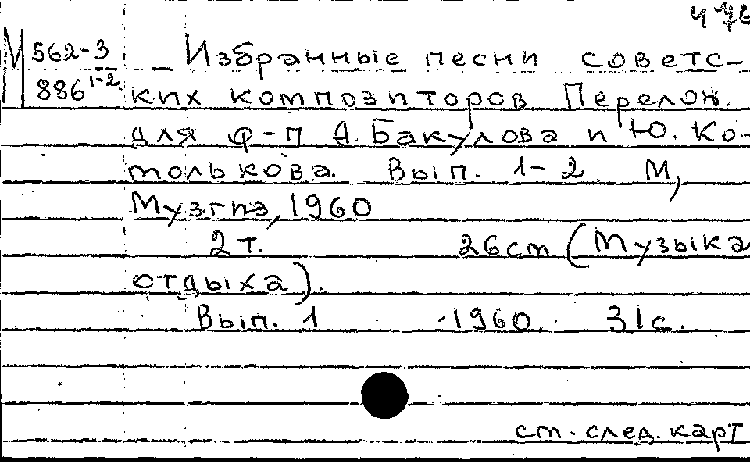 476
М 562-3 Избранные песни советс-
886 1-2 ких композиторов Перелож.
для ф-п А. Бакулова и Ю. Ко-
молькова. Вып. 1-2 М,
Музгиз, 1960
2 т. 26 cm (Музыка
отдыха).
Вып. 1 1960. 31 с.
см. след. карт